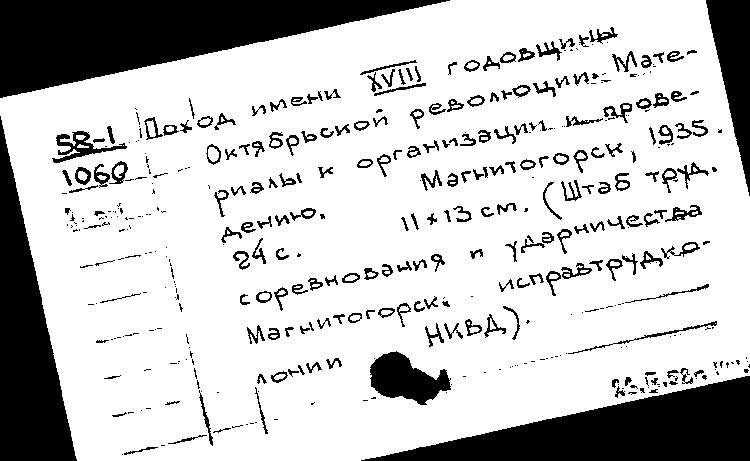 58-1 Поход имени XVIII годовщины
1060 Октябрьской революции. Мате-
риалы к организации и прове-
дению. Магнитогорск, 1935.
24 с. 11×13 см. (Штаб труд.
соревнования и ударничества
Магнитогорск. исправтрудко-
лонии НКВД).